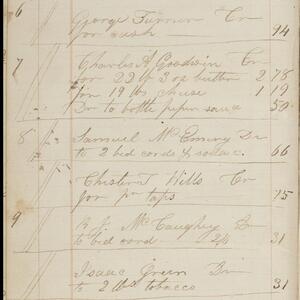 6
George Turner Cr
for cash 94
7
Charles A Goodwin Cr
for 22 lb 2 oz butter 2 78
for 19 lbs cheese 1 19
Dr to bottle peper sauce 50
8 Samuel McEmery Dr
to 2 bed cords & 66
Chester T Wills Cr
for pr taps 75
9
McCaughey Dr
to bed cord 2/1 31
Isaac Green Dr
to 2 lbs tobacco 31